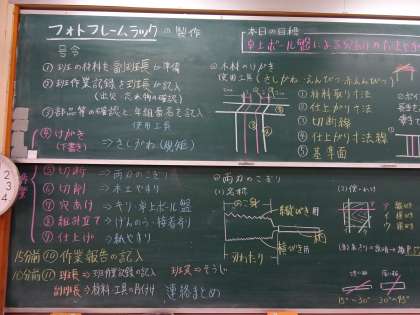 フォトフレームラックの製作
本日の目標
卓上ボール盤による穴あけ
号令
① 班の材料を副班長が準備
② 班作業記録を班長が記入
③ 部品等の確認と年組番名を記入
使用工具
④ けがき ⇒ さしがね(規矩)
(下書き)
⑤ 切断 ⇒ 両刃のこぎり
⑥ 切削 ⇒ 木工やすり
⑦ 穴あけ ⇒ きり・卓上ボール盤
⑧ 組み立て ⇒ げんのう・接着剤
⑨ 仕上げ ⇒ 紙やすり
15分前 ⑩ 作業報告の記入
10分前 ⑪ 班長⇒班作業記録の記入 班員⇒そうじ
副班長⇒材料・工具の片付け 連絡まとめ
木材のけがき
使用工具(さしがね・えんぴつ・赤えんぴつ)
① 材料取り寸法
② 仕上がり寸法
③ 切断線
④ 仕上がり寸法線
⑤ 基準面
両刃のこぎり
(1)名称
のこ身
縦びき用
横びき用
柄
刃わたり
(2)使い方
15°~30°
30°~45°
2
3
4